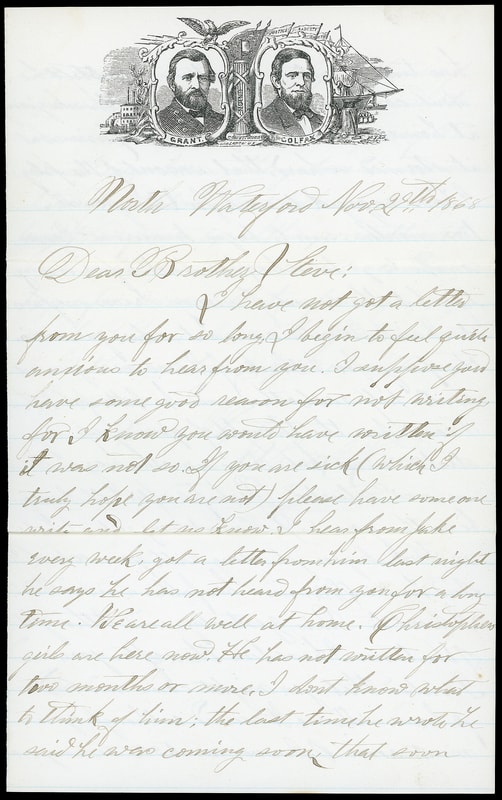 GRANT. COLFAX
North Waterford Nov 29th 1868
Dear Brother Steve:
I have not got a letter
from you for so long, I begin to feel quite
anxious to hear from you. I suppose you
have some good reason for not writing
for I know you would have written if
it was not so. If you are sick (which I
truly hope you are not) please have some one
write and let us know. I hear from Jake
every week, got a letter from him last night
he says he has not heard from you for a long
time. We are all well at home. Christophers
girls are here now. He has not written for
two months or more, I dont know what
to think of him; the last time he wrote he
said he was coming soon, that soon